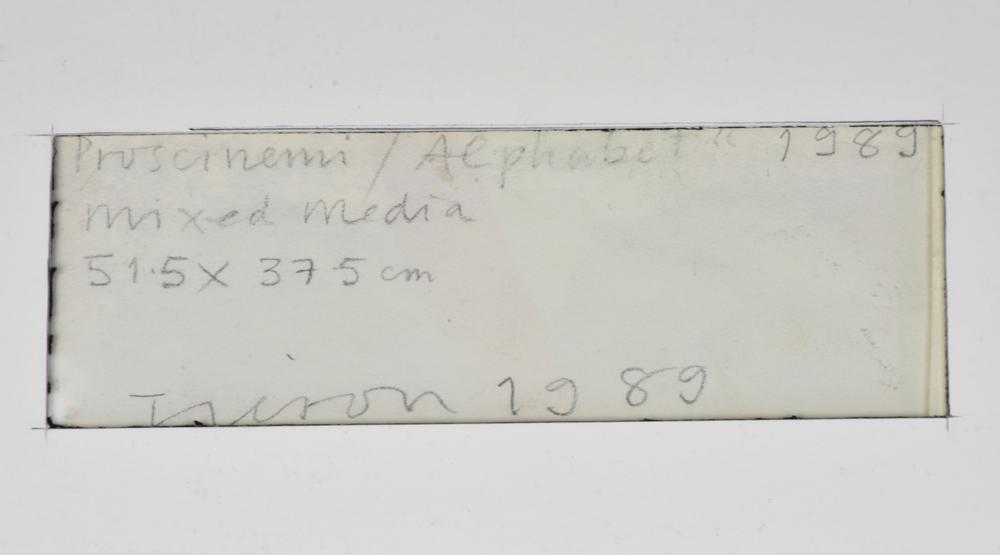 Proscinemi / Alphabet" 1989
mixed media
51.5 x 37 5 cm
1989